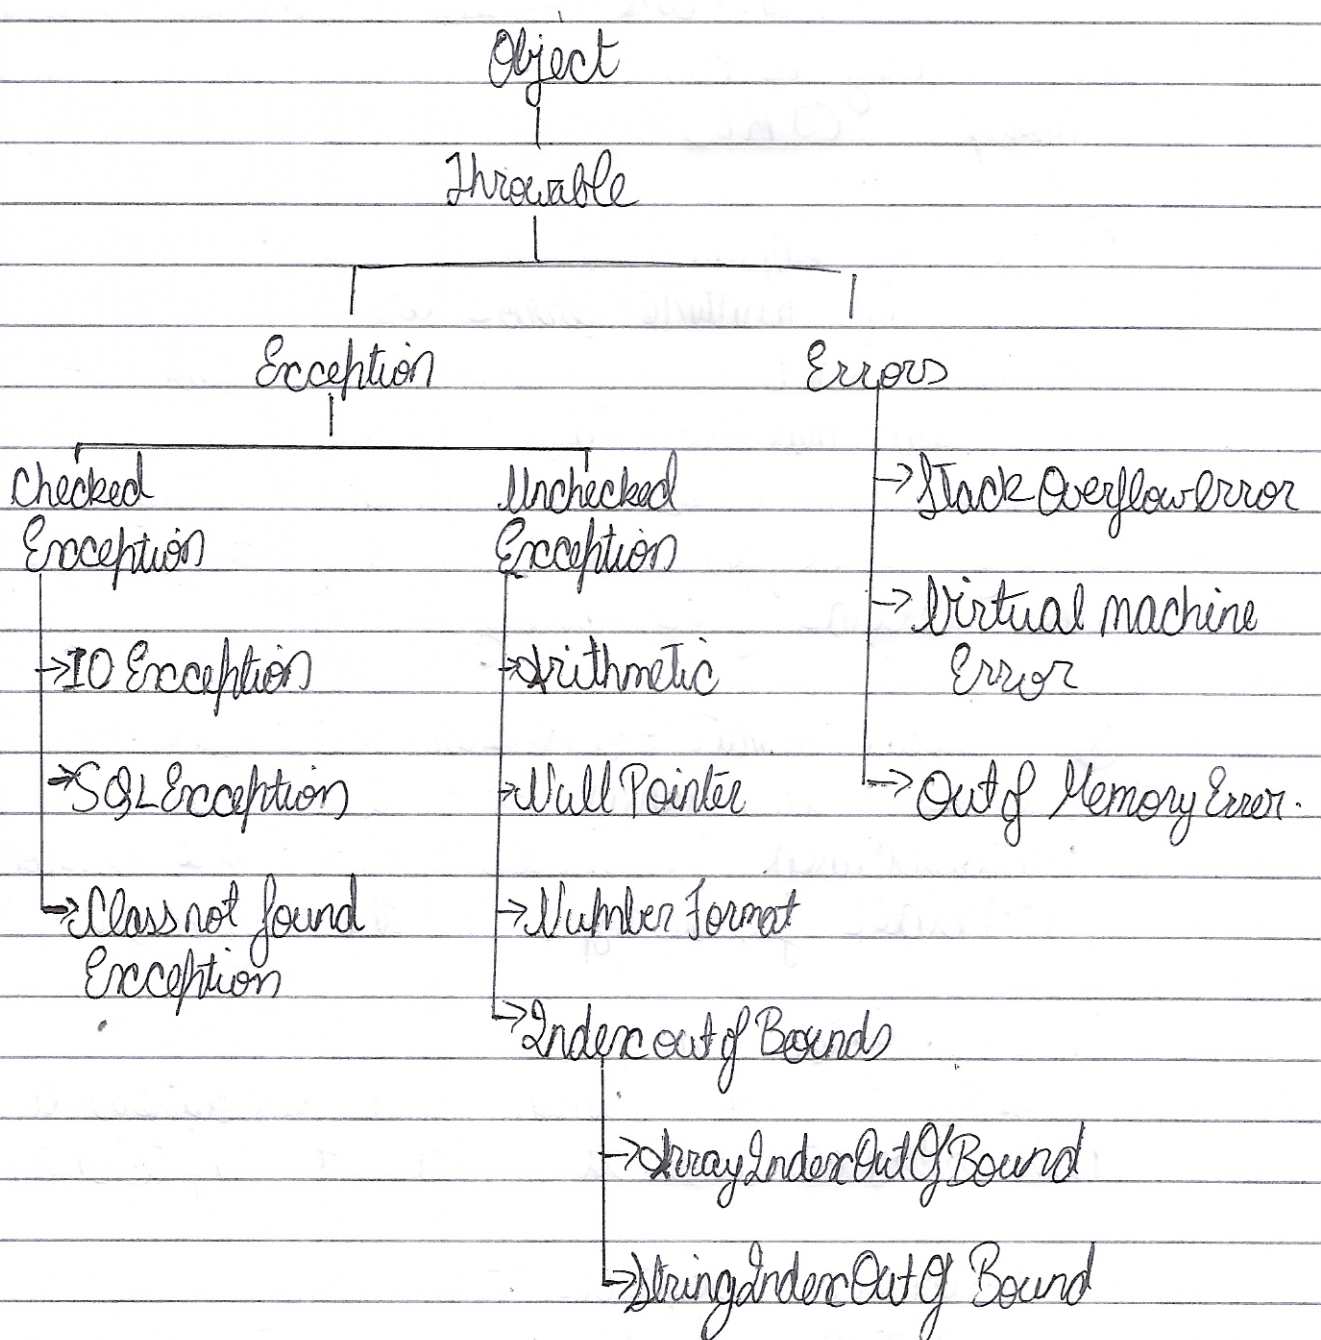 Object
Throwable
Exception
Errors
Checked
Exception
IO Exception
SQL Exception
Class not found
Exception
Unchecked
Exception
Arithmetic
Null Pointer
Number Format
Index out of Bounds
ArrayIndexOutOfBound
StringIndexOutOf Bound
Stack Overflow Error
Virtual machine
Error
Out of Memory Error.